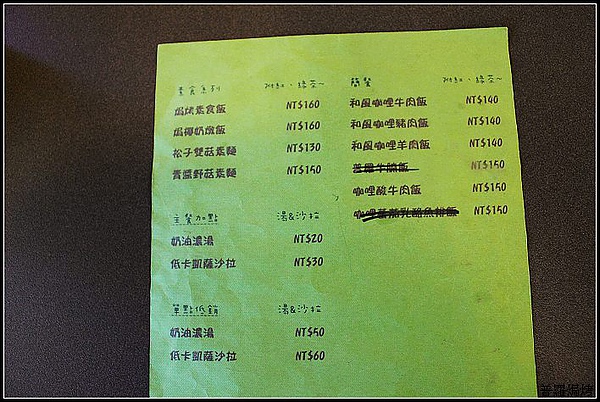 素食系列 附紅、綠茶~
焗烤素食飯 NT$160
焗椰奶燉飯 NT$160
松子雙菇素麵 NT$130
青醬野菇素麵 NT$150
主餐加點 湯&沙拉
奶油濃湯 NT$20
低卡凱薩沙拉 NT$30
單點低銷 湯&沙拉
奶油濃湯 NT$50
低卡凱薩沙拉 NT$60
簡餐 附紅、綠茶~
和風咖哩牛肉飯 NT$140
和風咖哩豬肉飯 NT$140
和風咖哩羊肉飯 NT$140
普羅牛腩飯 NT$150
咖哩酸牛肉飯 NT$150
咖哩蕃茄乳酪魚排飯 NT$150
普羅焗烤